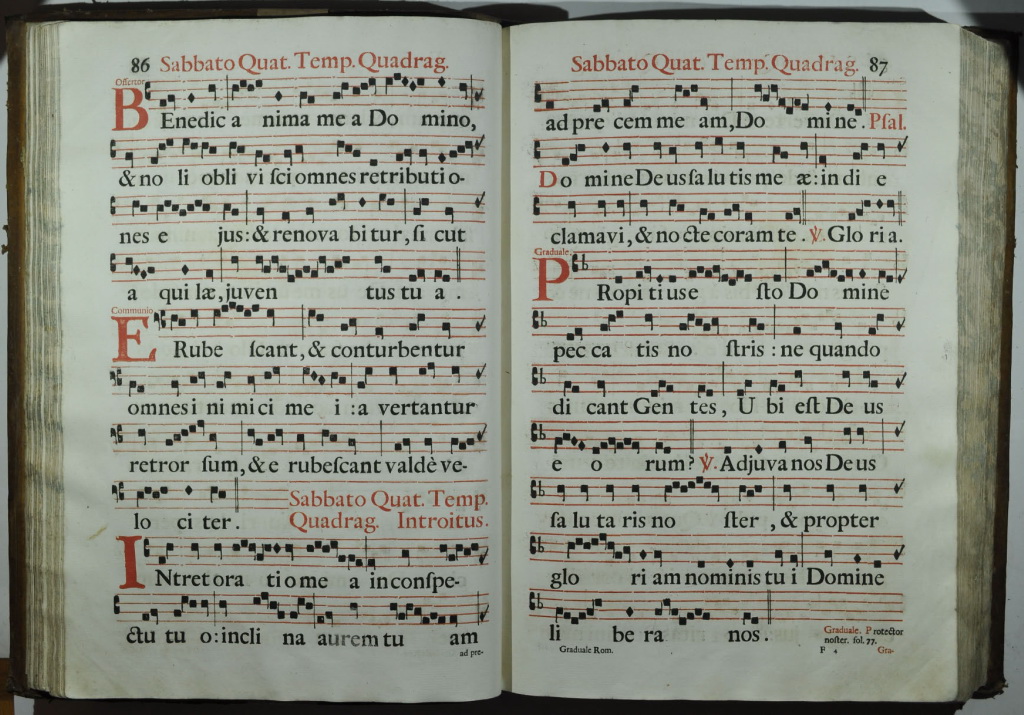 86 Sabbato Quat. Temp. Quadrag.
Offertor.
BEnedic a nima me a Do mino,
& no li obli vi sci omnes retributi o-
nes e jus: & renova bi tur, si cut
a qui læ, juven tus tu a .
Communio
ERube scant, & conturbentur
omnes i ni mi ci me i : a vertantur
retror sum, & e rubescant valdè ve-
lo ci ter.
Sabbato Quat. Temp.
Quadrag. Introitus.
INtret ora ti o me a in conspe-
ctu tu o: incli na aurem tu am
ad pre-
Sabbato Quat. Temp. Quadrag. 87
ad pre cem me am, Do mi ne. Psal.
Do mi ne De us sa lu tis me æ: in di e
clamavi, & no cte coram te . ℣. Glo ri a.
Graduale.
PRopi ti us e sto Do mine
pec ca tis no stris : ne quando
di cant Gen tes, U bi est De us
e o rum? ℣. Adjuva nos De us
sa lu ta ris no ster , & propter
glo ri am nominis tu i Domine
li be ra nos .
Graduale. Protector
noster. fol. 77.
Graduale Rom. F 4 Gra-